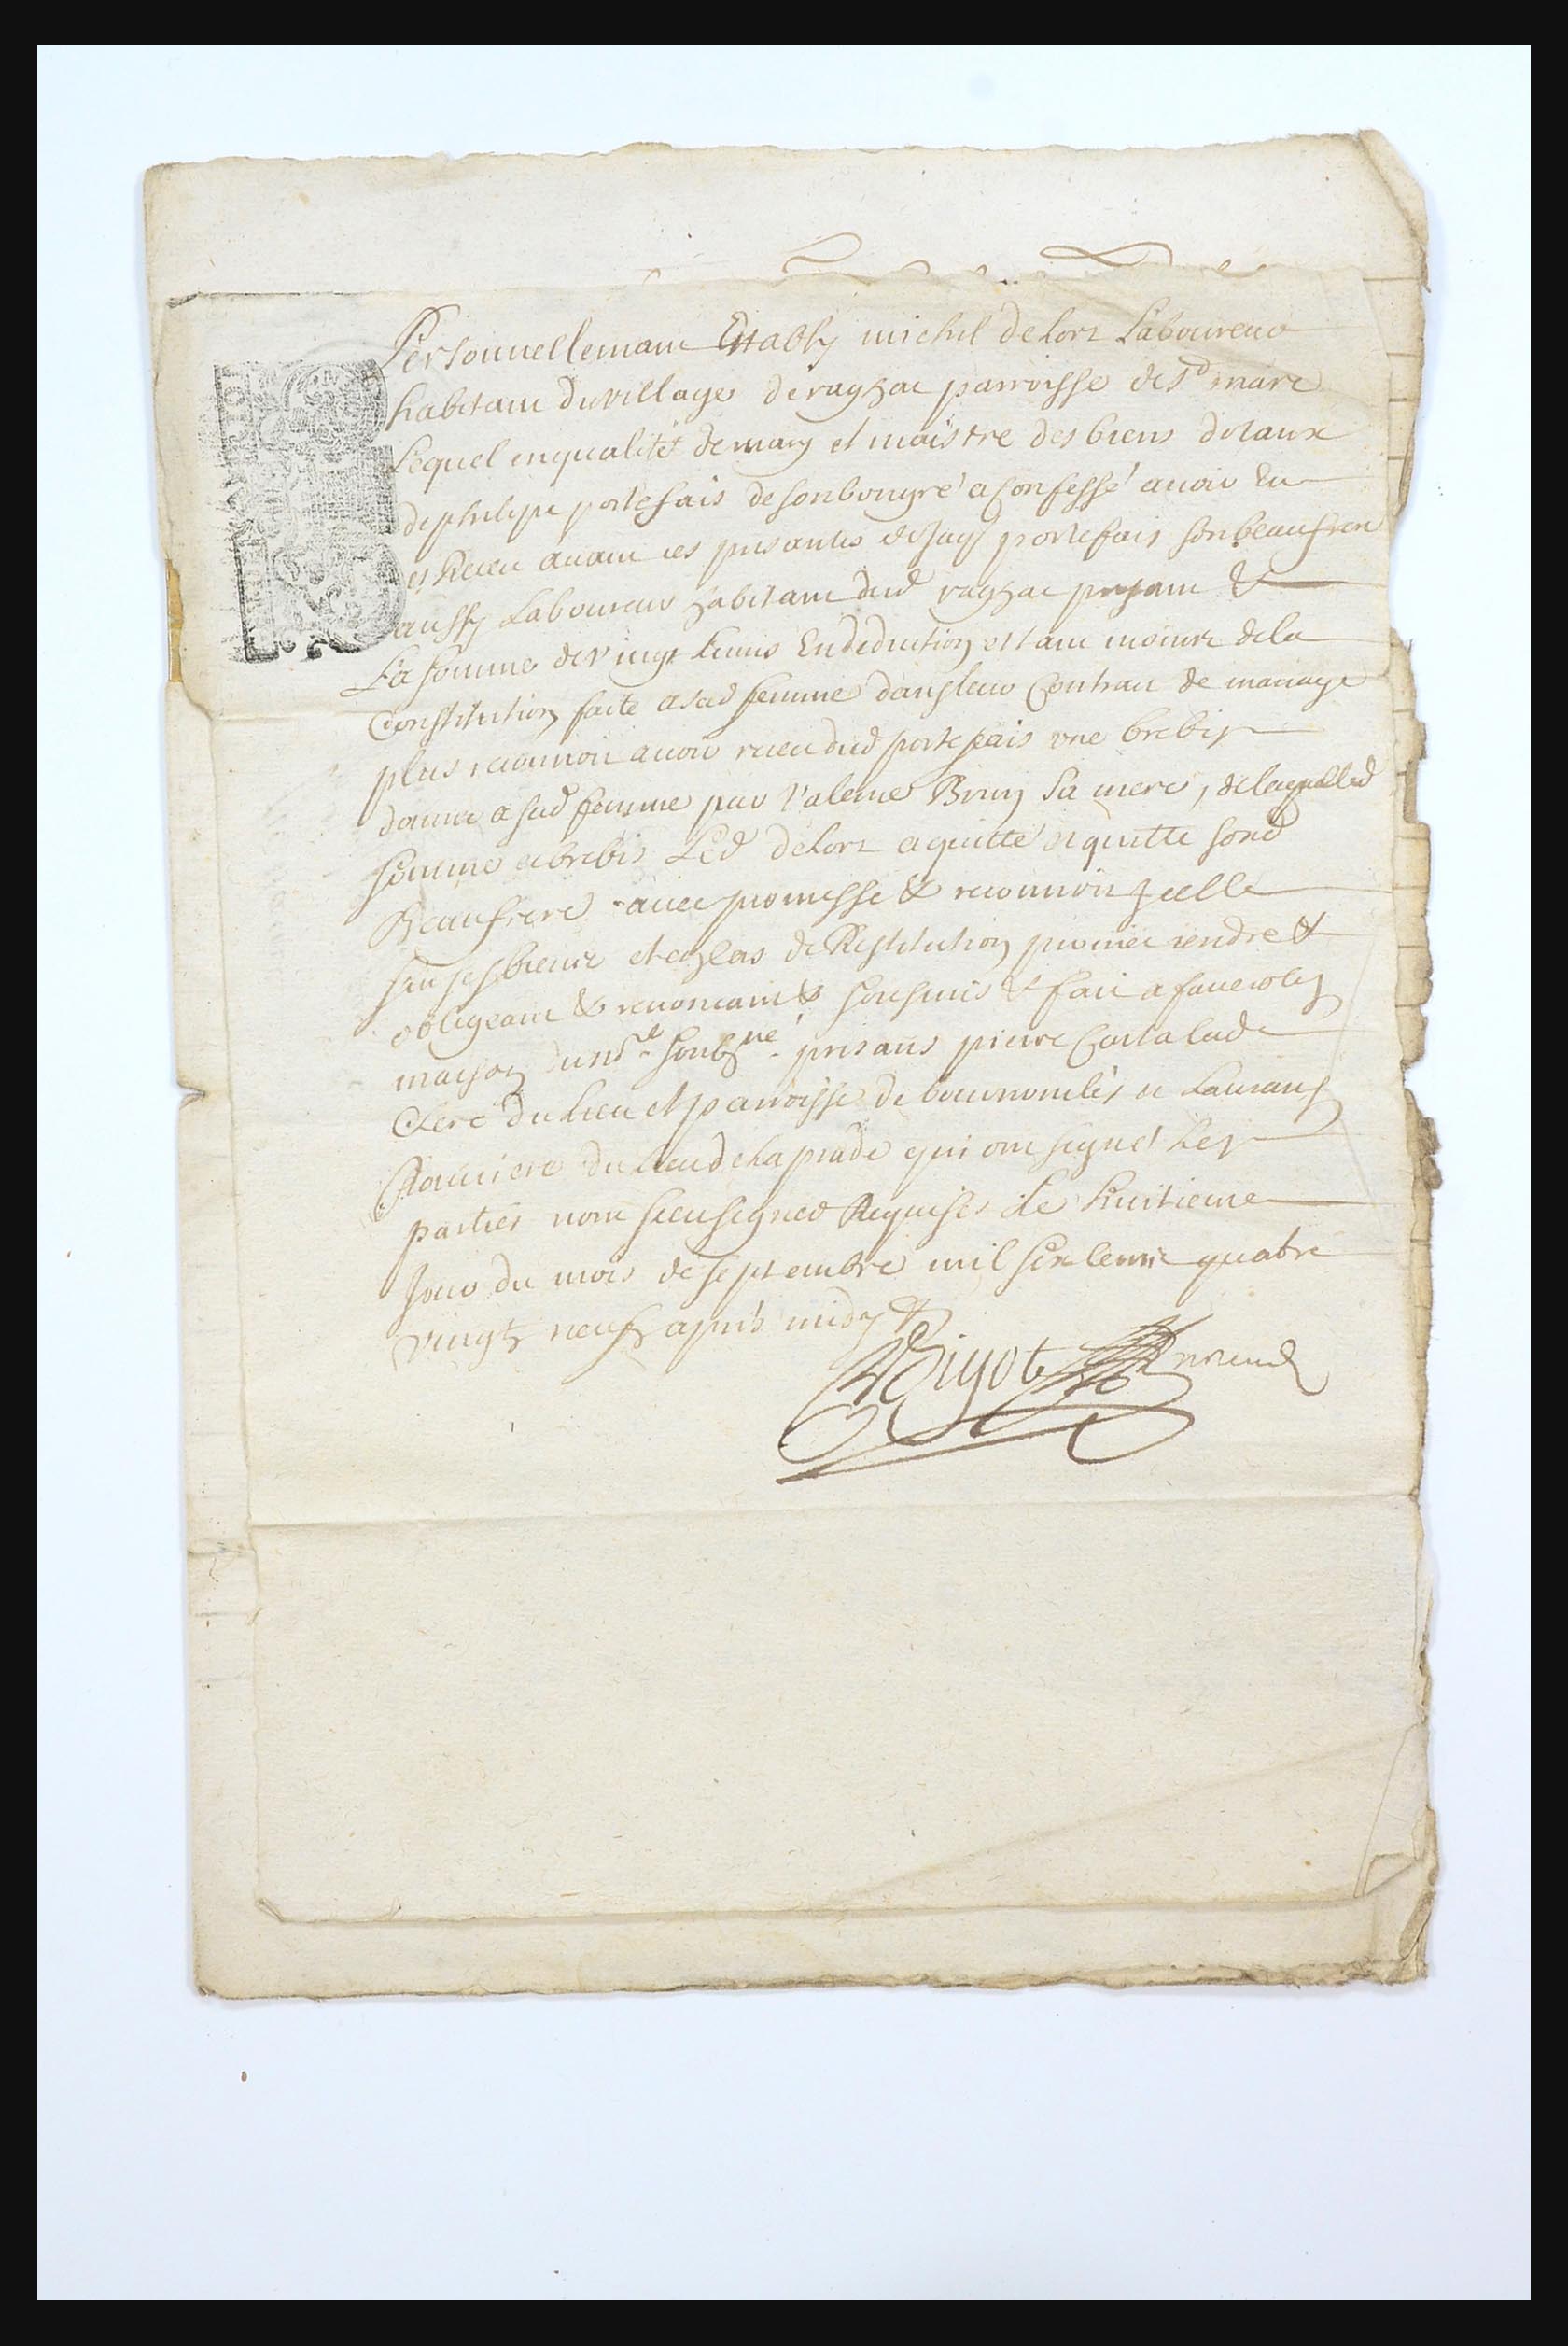 Personnellemant Establÿ michel delort Laboureur
habitant du village de ragzac parroisse de St marc
Lequel en qualité de marÿ et maistre des biens dotaux
de philipe portefais de son bon gré a Confessé avoir Eu
et Receu avant ces presantes de Jaq portefais son beaufrere
aussÿ Laboureur habitant dud ragzac presant &
La somme de vingt Livres En deduction et tant moins de la
Constitution faite a sad femme dans leur Contrat de mariage
plus reconnoit avoir receu dud portefais une brebis
donnée a sad femme par Brun sa mere, de laquelled
somme et brebis Led delort a quitté et quitte sond
Beaufrere avec promesse & reconnoit Icelle
sur ses biens et en cas de Restitution promet rendre &
obligeant & renonçant & soubsmis & fait a faverolÿ
maison du nre soubné presans pierre Cortalade
Clerc du Lieu et parroisse de et Laurans
du Lieu de la prade qui ont signé Les
parties nont sceu signer Requises Le huitieme
Jour du mois de septembre mil six cens quatre
vingtz neuf apres midÿ &
Bigot